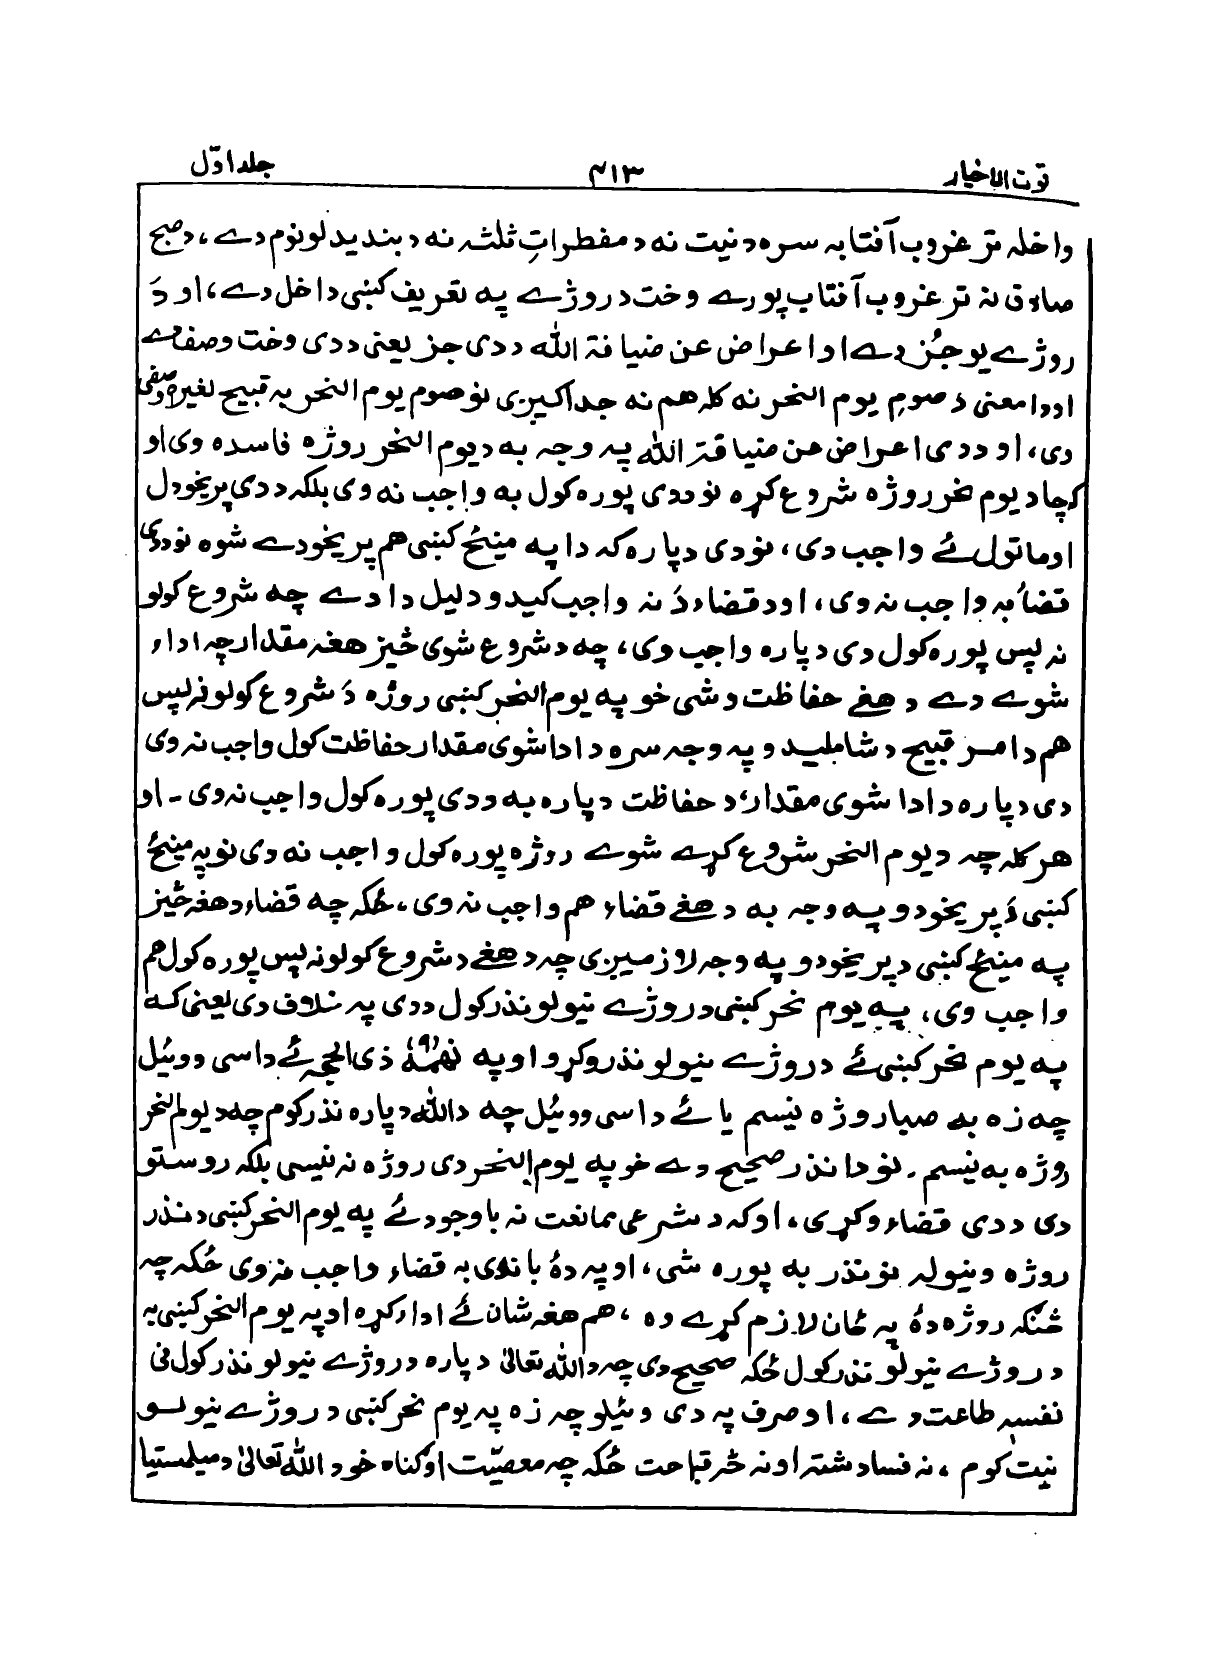 قوت الاخیار ۴۱۳ جلد اوّل
واخله تر غروب آفتابہ سره د نیت نه د مفطراتِ ثلثه نه د بندیدلو نوم دے، د صبح
صادق نه تر غروب آفتاب پورے وخت د روژے په تعریف کښی داخل دے، او دَ
روژے یو جُز دے او اعراض عن ضیافة الله د دی جز یعنی د دی وخت وصف دے
او دا معنی دَ صومِ یوم النحر نه کله هم نه جدا کیږی نو صوم یوم النحر به قبیح لغیره وصفی
دی، او د دی اعراض عن ضیافة الله په وجه به د یوم النحر روژه فاسده وی او
کچا د یوم نحر روژه شروع کړه نو د دی پوره کول به واجب نه وی بلکه د دی پریخودل
او ماتول ئے واجب دی، نو دی دپاره که دا په مینځ کښی هم پریخودے شوه نو د دی
قضاء به واجب نه وی، او د قضاء دَ نه واجب کیدو دلیل دا دے چه شروع کولو
نه پس پوره کول دی دپاره واجب وی، چه د شروع شوی څیز هغه مقدار چه اداء
شوے دے د هغے حفاظت وشی خو په یوم النحر کښی روژه دَ شروع کولو نه پس
هم د امر قبیح د شاملیدو په وجه سره د ادا شوی مقدار حفاظت کول واجب نه وی
دی دپاره د ادا شوی مقدار، د حفاظت دپاره به د دی پوره کول واجب نه وی ۔ او
هر کله چه د یوم النحر شروع کړے شوے روژه پوره کول واجب نه دی نو په مینځ
کښی دَ پریخودو په وجه به د هغے قضاء هم واجب نه وی، ځکه چه قضاء د هغه څیز
په مینځ کښی د پریخودو په وجه لازمیږی چه د هغے د شروع کولو نه پس پوره کول هم
واجب وی، په یوم نحر کښی د روژے نیولو نذر کول د دی په خلاف دی یعنی که
په یوم نحر کښی ئے د روژے نیولو نذر وکړو او په نهمه (۹) ذی الحجه ئے داسی ووئیل
چه زه به صبا روژه نیسم یا ئے داسی ووئیل چه د الله دپاره نذر کوم چه د یوم النحر
روژه به نیسم ۔ نو دا نذر صحیح دے خو په یوم النحر دی روژه نه نیسی بلکه روستو
دی د دی قضاء وکړی، او که د شرعی ممانعت نه باوجود ئے په یوم النحر کښی د نذر
روژه ونیوله نو نذر به پوره شی، او په دۀ باندی به قضاء واجب نه وی ځکه چه
څنګه روژه دۀ په ځان لازم کړے وه، هم هغه شان ئے اداء کړه او په یوم النحر کښی به
د روژے نیولو نذر کول ځکه صحیح دی چه د الله تعالیٰ دپاره د روژے نیولو نذر کول فی
نفسہ طاعت دے، او صرف په دی وئیلو چه زه په یوم نحر کښی د روژے نیولو
نیت کوم، نه فساد شته او نه څه قباحت ځکه چه معصیّت او ګناه خو د الله تعالیٰ د میلمستیا